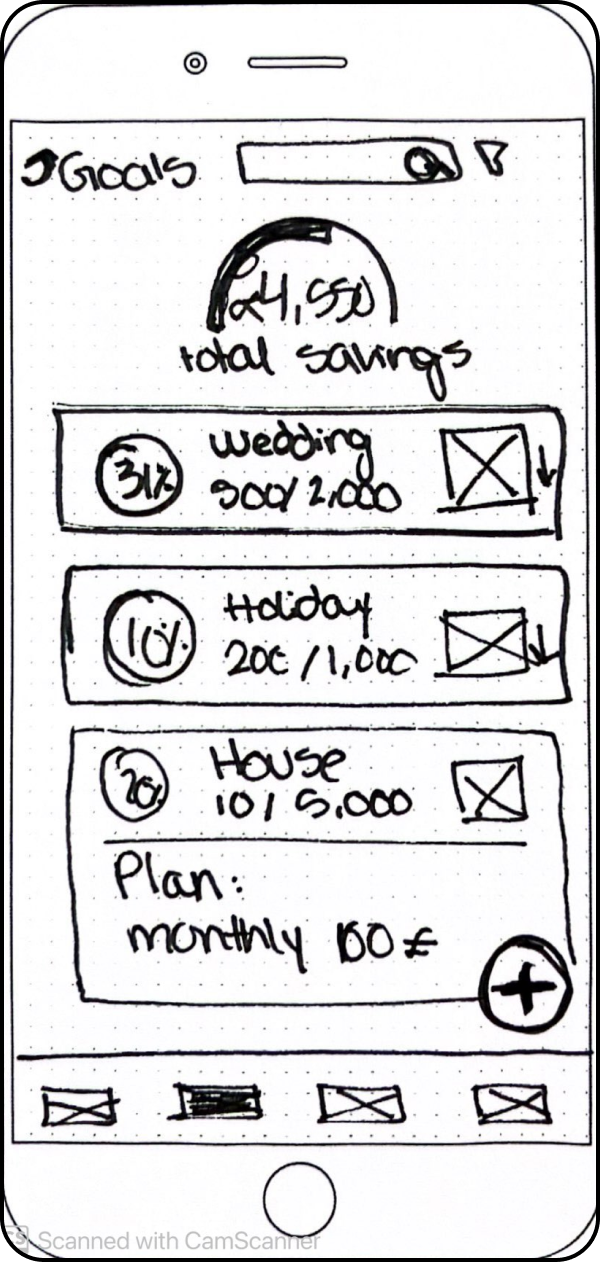 Goals
24,550
total savings
31%
Wedding
500/2,000
10%
Holiday
200/1,000
20%
House
10/5.000
Plan:
monthly 100€
Scanned with CamScanner